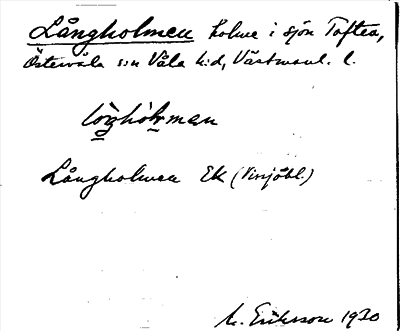 Långholmen holme i sjön Toften,
Östervåla sn Våla hd, Västmanl. l.
Långholmen EK (Visjöbl.)
M. Eriksson 1930